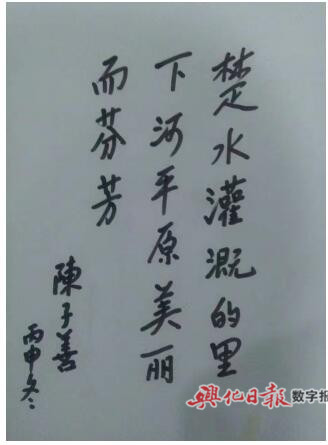 楚水灌溉的里
下河平原美丽
而芬芳
陳子善
丙申冬
興化日報 数字报